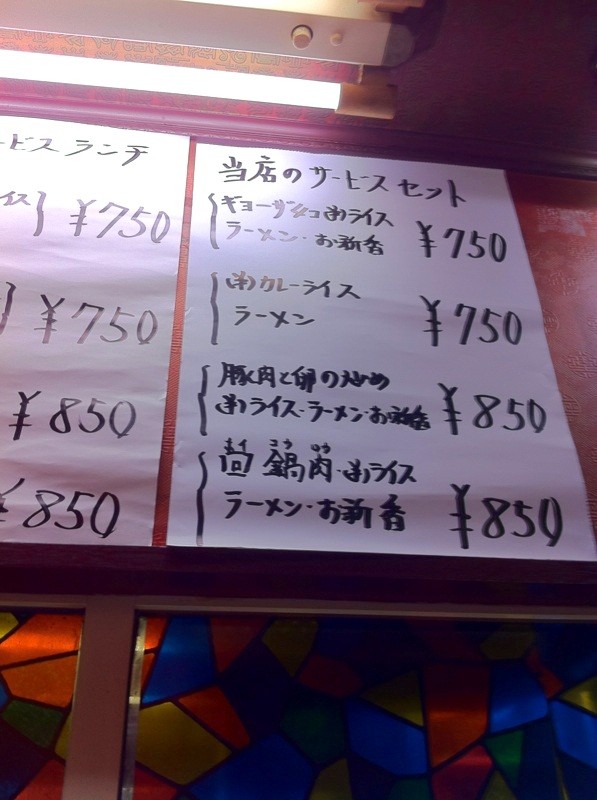 ービスランチ
イス
¥750
¥750
¥850
¥850
当店のサービスセット
ギョーザ4コ 半ライス
ラーメン・お新香
¥750
半カレーライス
ラーメン
¥750
豚肉と卵の炒め
半ライス・ラーメン・お新香
¥850
回鍋肉・半ライス
ラーメン・お新香
¥850